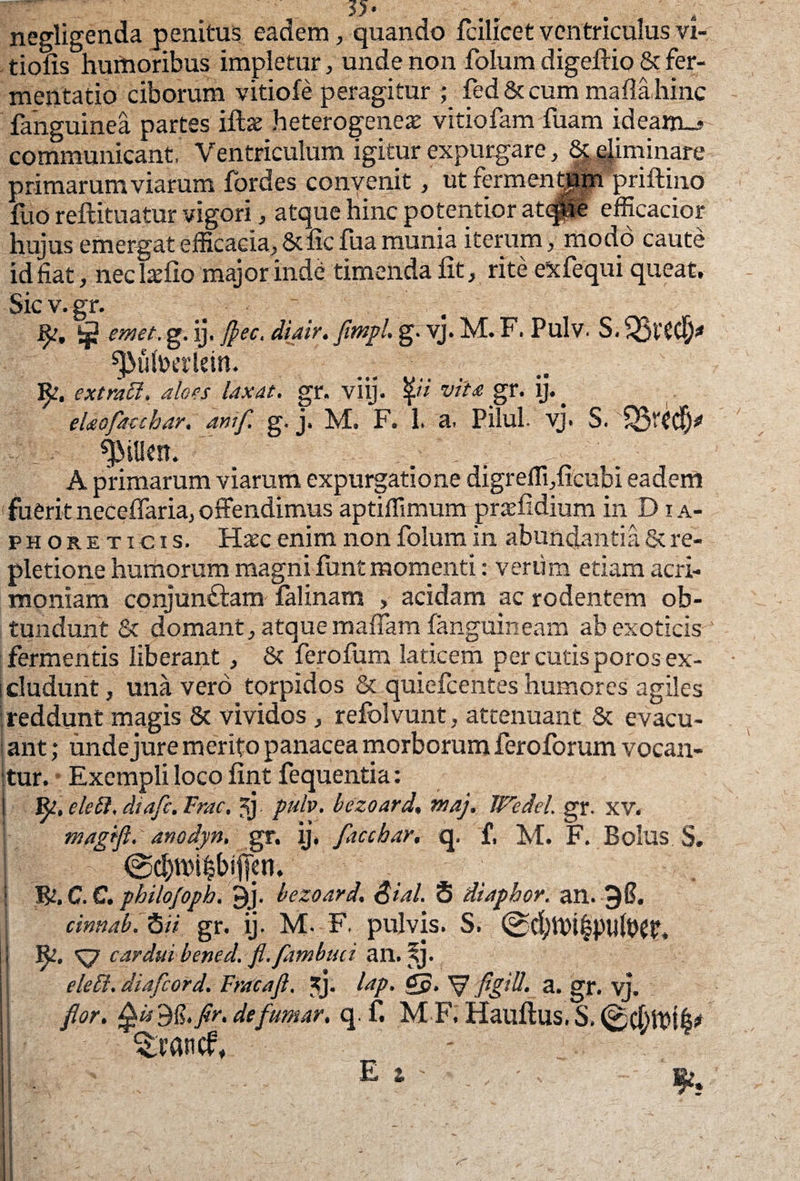 35.
negligenda penitus eadem, quando ſcilicet ventriculus vi-
tioſis humoribus impletur, unde non ſolum digeſtio & fer-
mentatio ciborum vitioſe peragitur ; ſed & cum maſſâ hinc
ſanguineâ partes iſtæ heterogeneæ vitioſam ſuam ideam
communicant, Ventriculum igitur expurgare, & eliminare
primarum viarum ſordes convenit, ut fermentum priſtino
ſuo reſtituatur vigori, atque hinc potentior atque efficacior
hujus emergat efficacia, & ſic ſua munia iterum, modò cautè
id fiat, nec læſio major inde timenda ſit, ritè exſequi queat.
Sic v. gr.
℞. 🜏 emet. g. ij. ſpec. diair. ſimpl. g. vj. M. F. Pulv. S. Brech⸗
Pülverlein.
℞. extract. aloes laxat. gr. viij. ♃ii vitæ gr. ij.
elæoſacchar. aniſ. g. j. M. F. l. a. Pilul. vj. S. Brech⸗
Pillen.
A primarum viarum expurgatione digreſſi, ſicubi eadem
fuerit neceſſaria, offendimus aptiſſimum præſidium in DIA-
PHORETICIS. Hæc enim non ſolum in abundantiâ & re-
pletione humorum magni ſunt momenti : verùm etiam acri-
moniam conjunctam ſalinam, acidam ac rodentem ob-
tundunt & domant, atque maſſam ſanguineam ab exoticis
fermentis liberant, & ſeroſum laticem per cutis poros ex-
cludunt, unà verò torpidos & quieſcentes humores agiles
reddunt magis & vividos, reſolvunt, attenuant & evacu-
ant ; unde jure merito panacea morborum ſeroſorum vocan-
tur. Exempli loco ſint ſequentia :
℞. elect. diaſc. Frac. ʒj pulv. bezoard. maj. Wedel. gr. xv.
magiſt. anodyn. gr. ij. ſacchar. q. ſ. M. F. Bolus S.
Schwitzbiſſen.
℞. C. C. philoſoph. ℈j. bezoard. ♂ial. ♁ diaphor. an. ℈ß.
cinnab. ♁ii gr. ij. M. F. pulvis. S. Schwitzpulver.
℞. 🜄 cardui bened. fl. ſambuci an. ℥j.
elect. diaſcord. Fracaſt. ʒj. lap. 69. 🜃 ſigill. a. gr. vj.
flor. 🜍is ℈ß. ſir. de fumar. q. ſ. M F. Hauſtus. S. Schwitz⸗
Tranck.
E 2
℞.